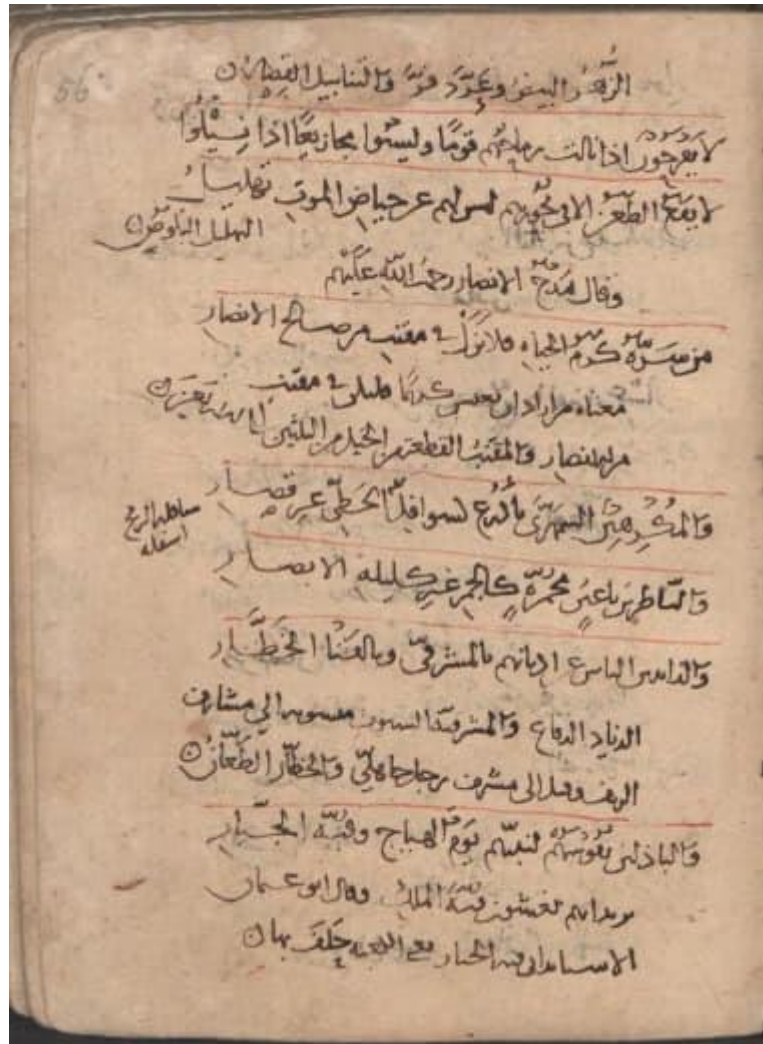 56
الزُّهْرُ البيض وعَرَّدَ فرَّ والتنابيل القِصار
لا يَفرحون اذا نالت رماحُهُم قومًا وليسُوا مجازيعًا اذا نِيْلُوا
لا يقع الطعن الا في نحورهم ليس لهم عن حياض الموت تهليل
التهليل النكوص
وقال يمدح الانصار رحمة الله عليهم
من سرّه كرم الحياه فلا يزل في مقنب من صالح الانصار
معناه من اراد ان يعيش كريمًا فليكن في مقنب
من الانصار والمقنب القطعة من الخيل من الثلثين الى
والمكرهين السمهري باذرع كسوافل الخطي غير قصار
سافلة الرمح
اسفله
والناظرين باعين محمرة كالجمر غير كليلة الابصار
والذايدين الناس عن اديانهم بالمشرفي وبالقنا الخطّار
الذياد الدفاع والمشرفية السيوف منسوبة الى مشارف
الريف وقيل الى مشرف رجل جاهلي والخطّار الطعّان
والباذلين نفوسهم لنبيهم يوم الهياج وقبة الجبّار
يريد انهم قبة الملك وقال ابو عثمان
الاشنانداني قبة الجبار حَلَف بها